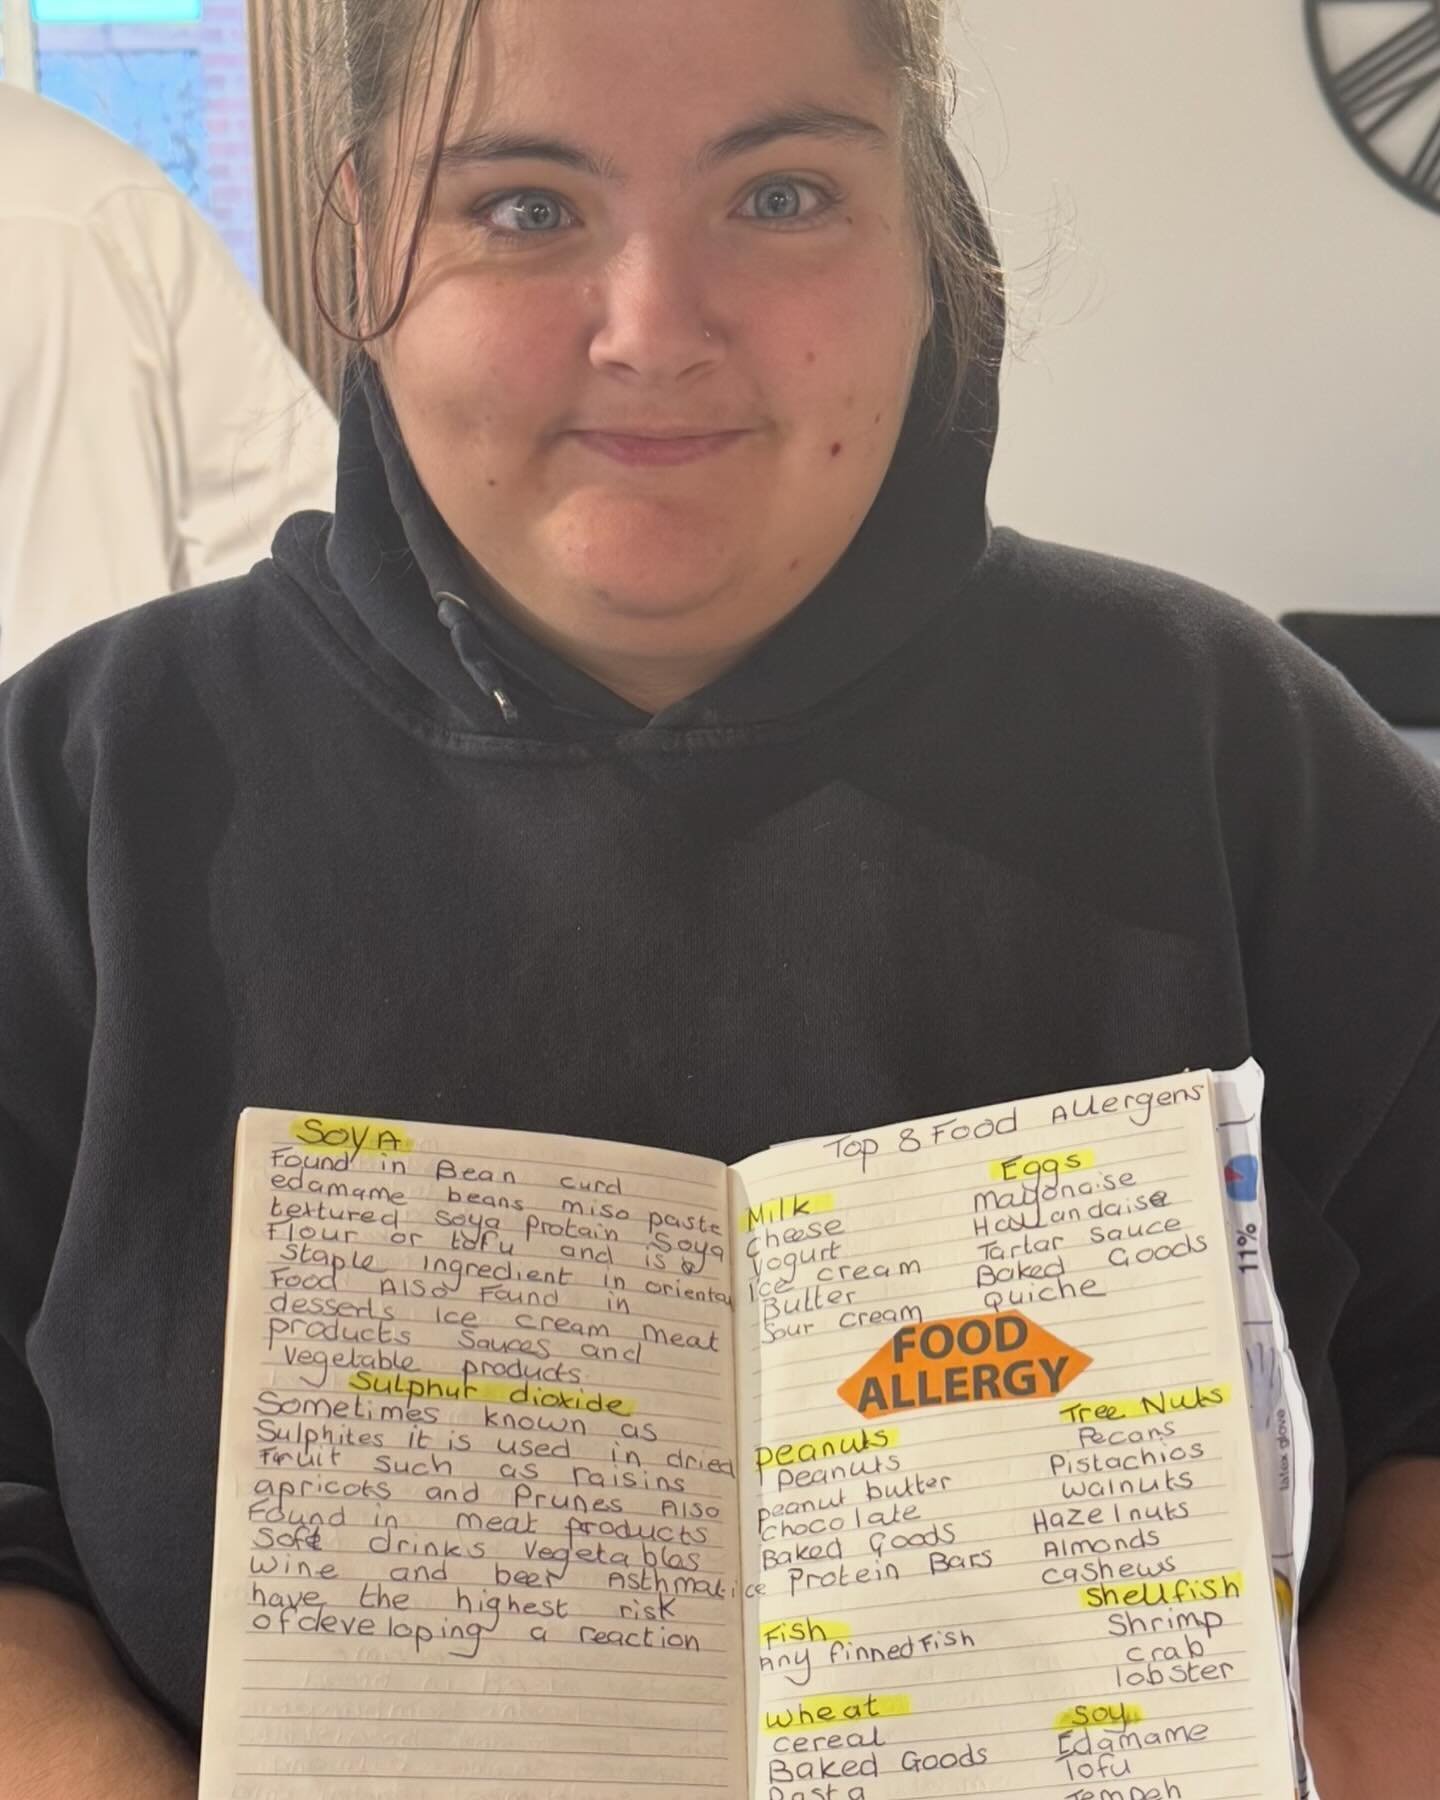 SOYA
Found in Bean curd
edamame beans miso paste
textured soya protain Soya
Flour or tofu and is a
Staple ingredient in oriental
Food Also Found in
desserts Ice cream meat
products Sauces and
vegetable products
Sulphur dioxide
Sometimes known as
Sulphites it is used in dried
Fruit such as raisins
apricots and Prunes Also
Found in meat products
Soft drinks vegetables
wine and beer Asthmatice
have the highest risk
of developing a reaction
Top 8 Food Allergens
Milk
cheese
Yogurt
Ice cream
Butter
Sour cream
Eggs
mayonaise
Hollandaise
Tartar sauce
Baked Goods
quiche
FOOD
ALLERGY
Peanuts
Peanuts
peanut butter
chocolate
Baked Goods
Protein Bars
Tree Nuts
Pecans
Pistachios
walnuts
Hazelnuts
Almonds
cashews
Fish
Any finned Fish
Shellfish
Shrimp
crab
lobster
wheat
cereal
Baked Goods
Pasta
Soy
Edamame
Tofu
Tempeh
11%
latex glove